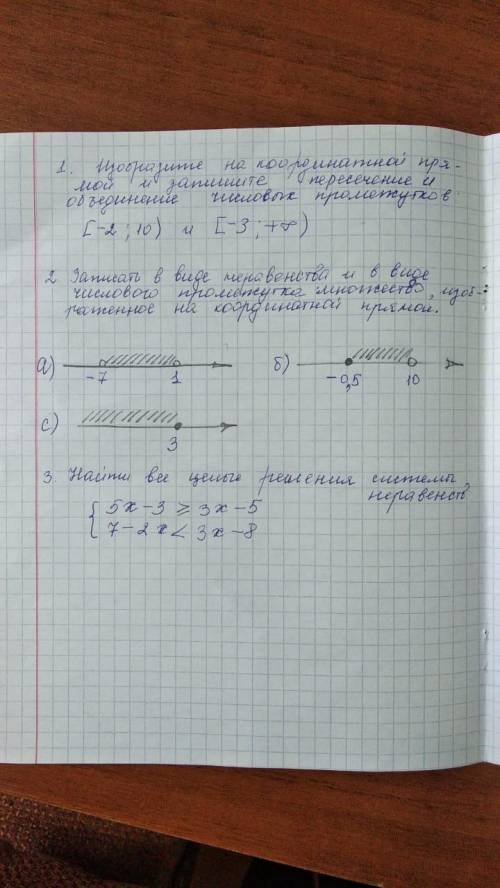 1. Изобразите на координатной пря-
мой и запишите пересечение и
объединение числовых промежутков:
[-2; 10) и [-3; +∞)
2. Записать в виде неравенства и в виде
числового промежутка множество, изоб-
раженное на координатной прямой.
а) -7 1 б) -0,5 10
с) 3
3. Найти все целые решения системы
неравенств
{ 5x-3 ⩾ 3x-5
7-2x < 3x-8